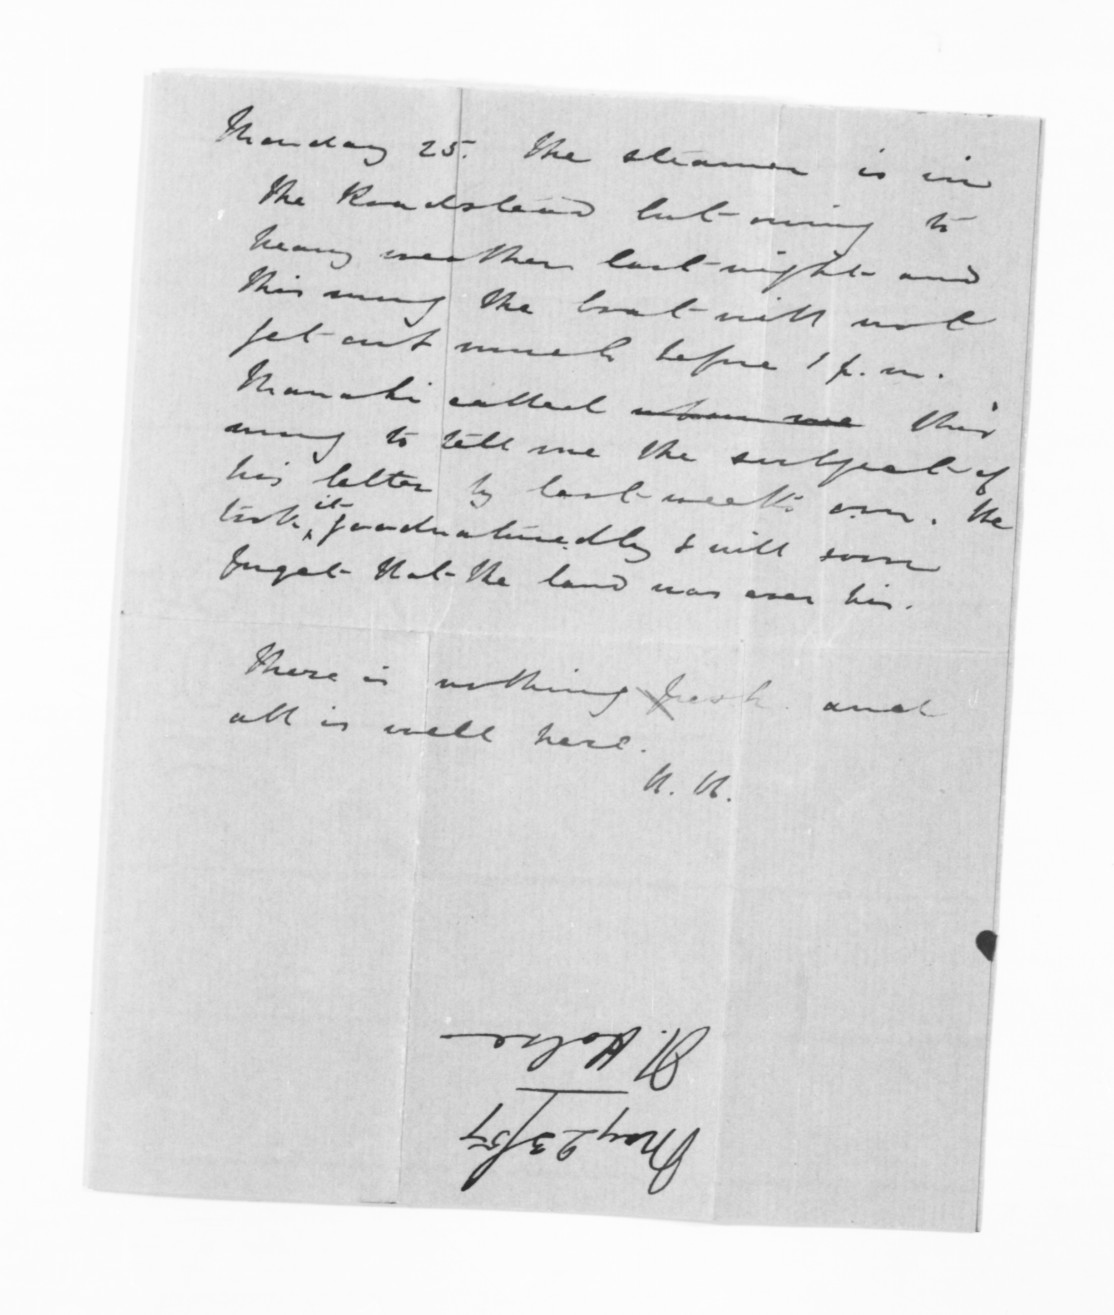 Monday 25. The steamer is in
the Roadstead but owing to
heavy weather last night and
this morng the boat will not
get out much before 1 p.m.
Manahi called this
morng to tell me the subject of
his letter by last week's osm. He
took it goodnaturedly & will soon
forget that the land was ever his.
There is nothing fresh and
all is well here.
H. H.
H. Halse
May 23/57